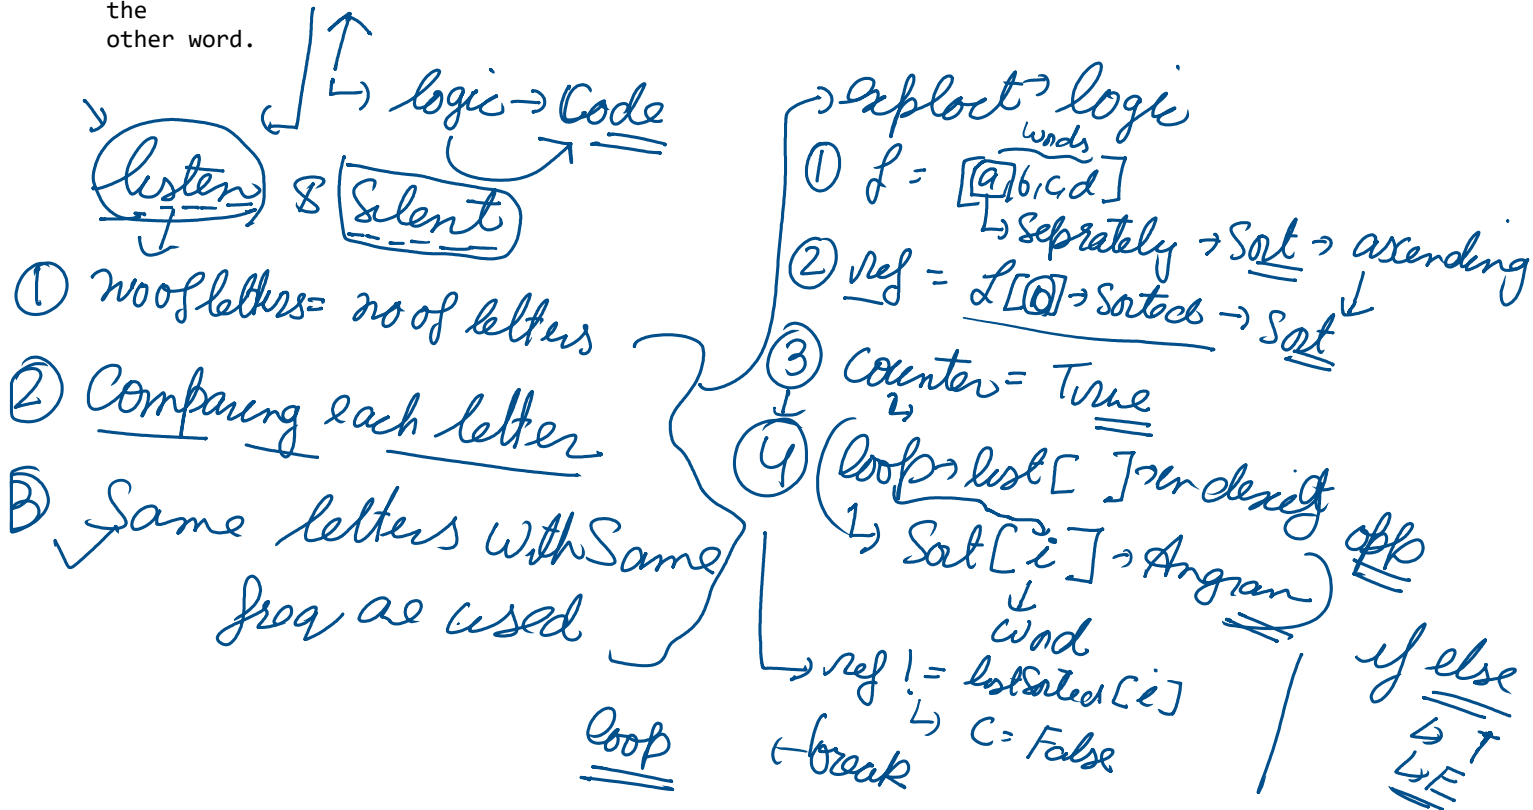 the
other word.
↳ logic → Code
listen & Silent
① no of letters = no of letters
② Comparing each letter
③ Same letters with Same
freq are used
loop
→ exploct → logic
words
① L = [a, b, c, d]
↳ Seprately → Sort → ascending
② ref = L[0] → Sorted → Sort
③ counter = True
④ loop → list [ ] → indexing
↳ Sort [i] → Angram
opp
word
→ ref != listSorted [i]
↳ C = False
← break
if else
↳ T
↳ F